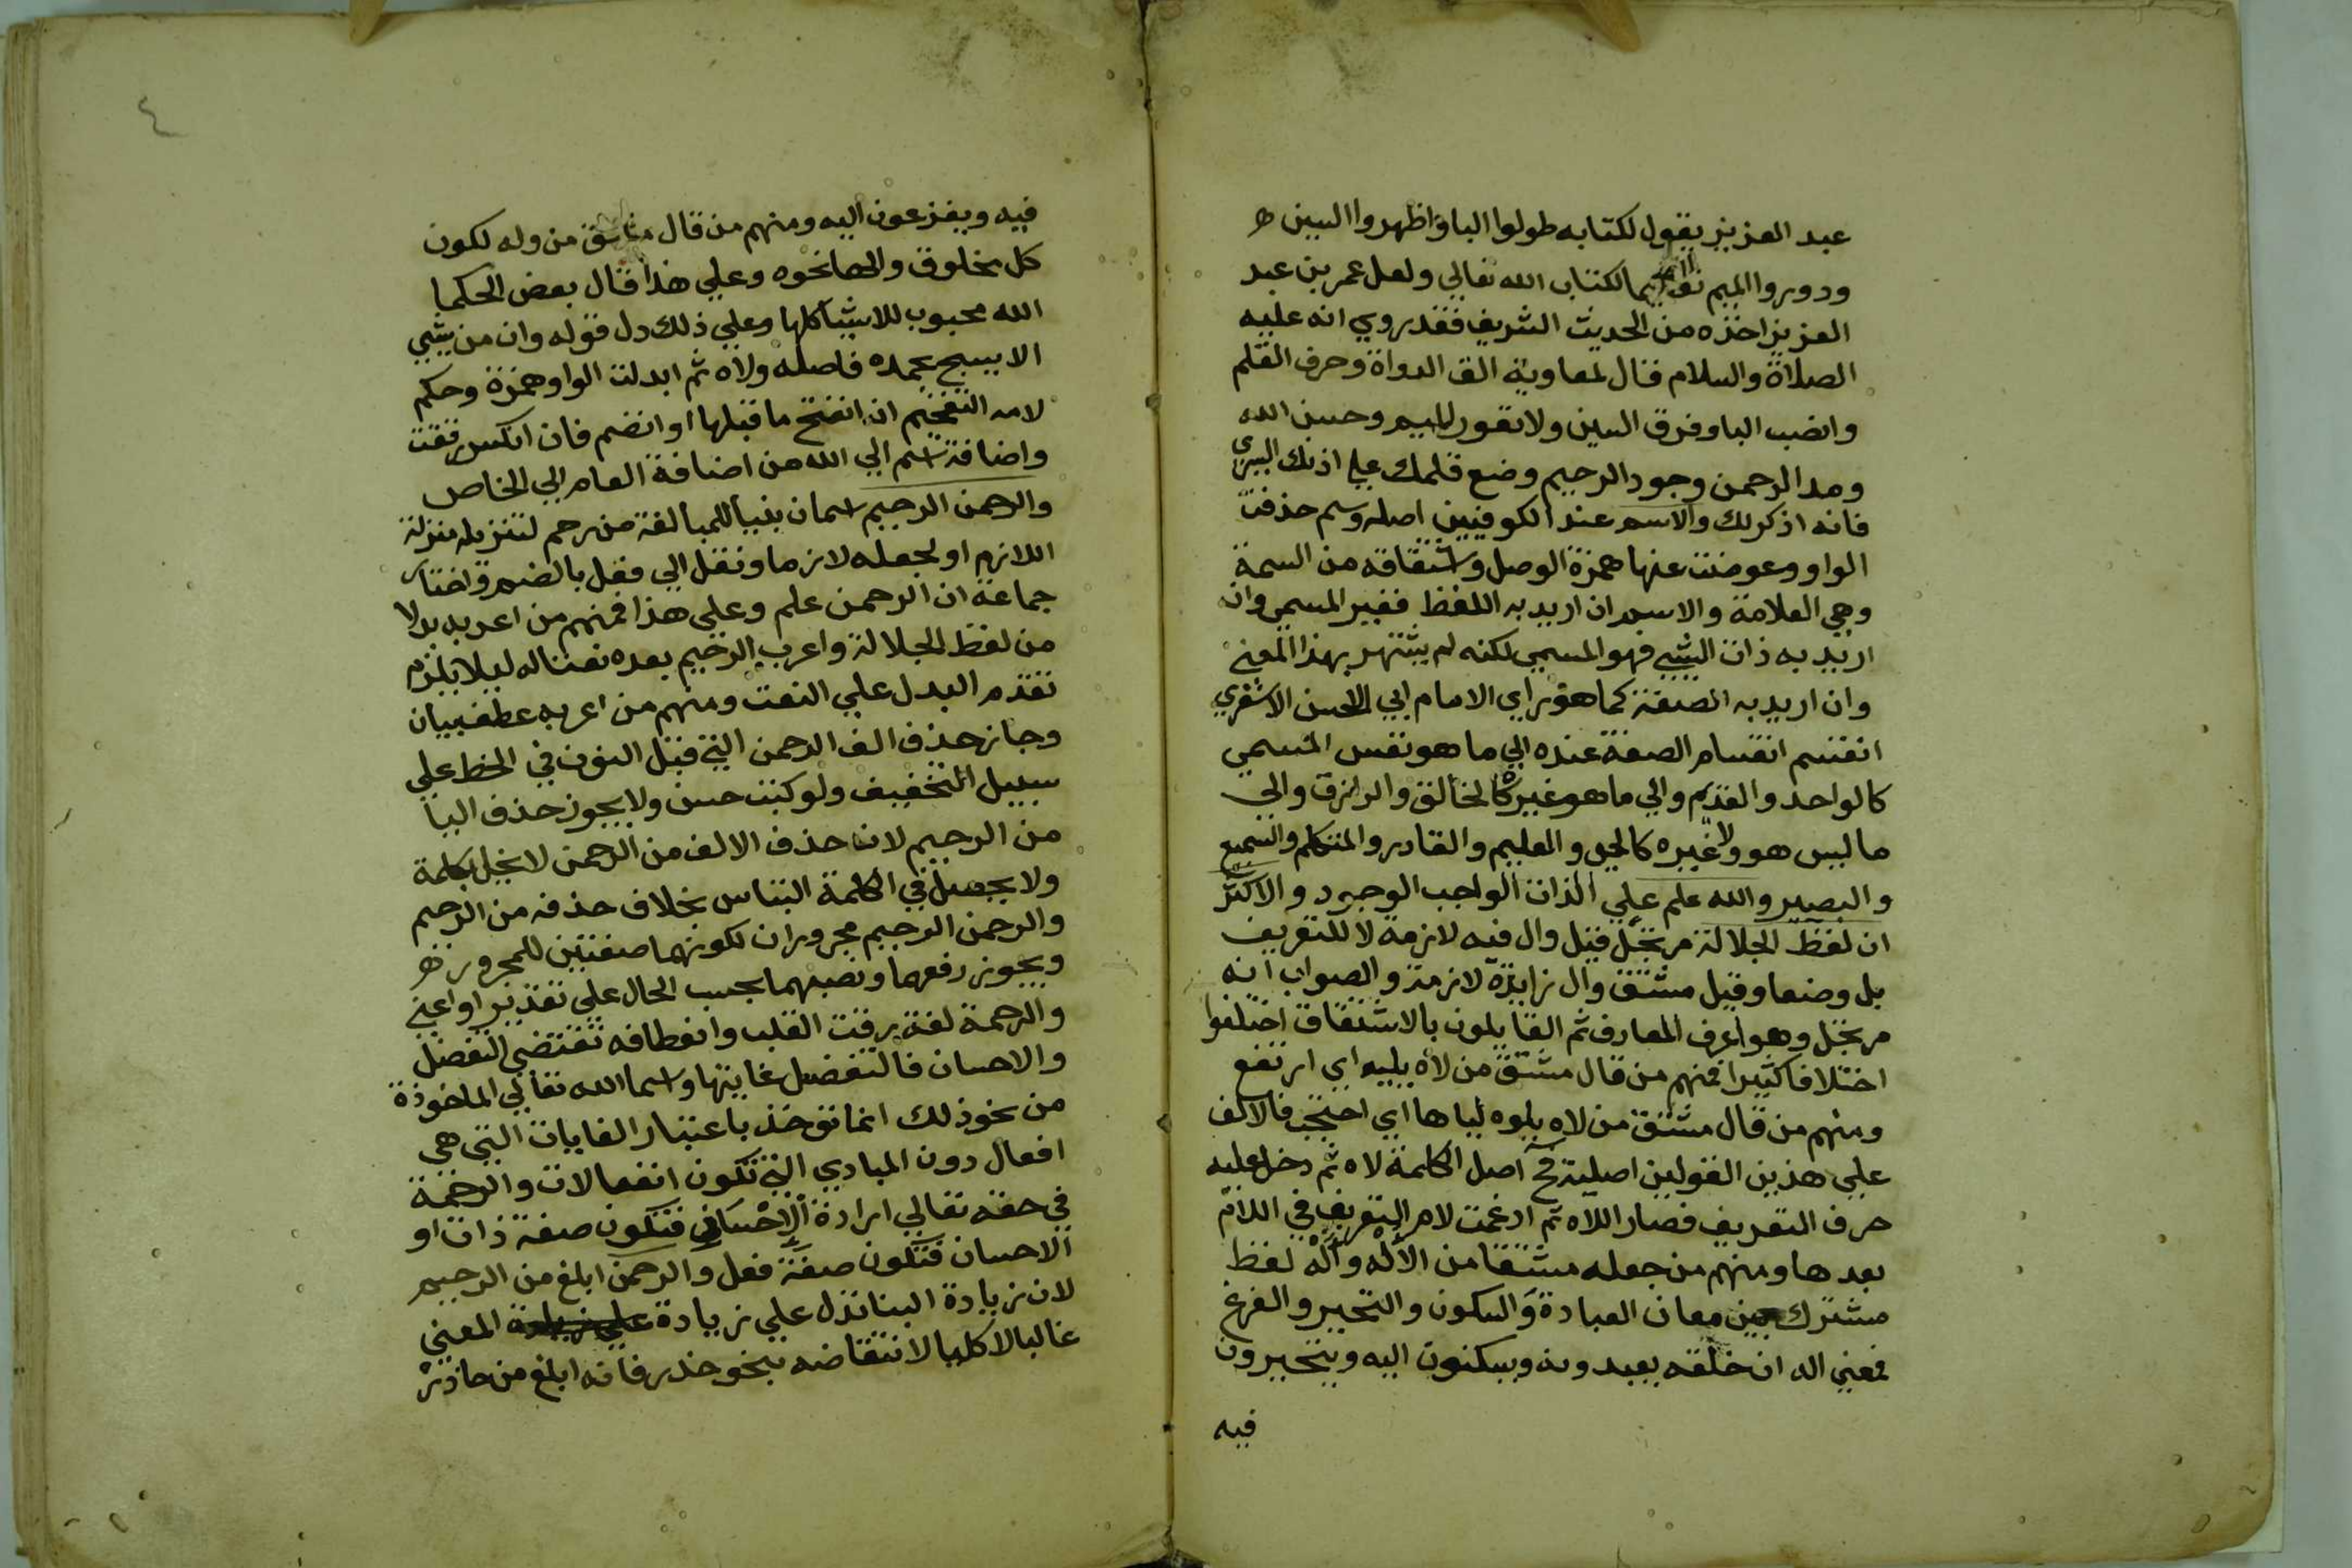 عبد العزيز يقول لكتابه طولوا البا واظهروا السين ھ
ودوروا الميم تعظيما لكتاب الله تعالي ولعل عمر بن عبد
العزيز اخذه من الحديث الشريف فقد روي انه عليه
الصلاة والسلام قال لمعاوية الق الدواة وحرف القلم
وانصب البا وفرق السين ولا تعور الميم وحسن الله
ومد الرحمن وجود الرحيم وضع قلمك علي اذنك اليسري
فانه اذكر لك والاسم عند الكوفيين اصله وسم حذفت
الواو وعوضت عنها همزة الوصل واشتقاقه من السمة
وهي العلامة والاسم ان اريد به اللفظ فغير المسمي وان
اريد به ذات الشي فهو المسمي لكنه لم يشتهر بهذا المعني
وان اريد به الصفة كما هو راي الامام ابي الحسن الاشعري
انقسم انقسام الصفة عنده الي ما هو نفس المسمي
كالواحد والقديم والي ما هو غيره كالخالق والرازق والي
ما ليس هو ولا غيره كالحي والعليم والقادر والمتكلم والسميع
والبصير والله علم علي الذات الواجب الوجود والاكثر
ان لفظ الجلالة مرتجل قيل وال فيه لازمة لا للتعريف
بل وضعا وقيل مشتق وال زايدة لازمة والصواب انه
مرتجل وهو اعرف المعارف ثم القايلون بالاشتقاق اختلفوا
اختلافا كثيرا فمنهم من قال مشتق من لاه يليه اي ارتفع
ومنهم من قال مشتق من لاه يلوه لياها اي احتجب فالالف
علي هذين القولين اصلية فح اصل الكلمة لاه ثم دخل عليه
حرف التعريف فصار اللاه ثم ادغمت لام التعريف في اللام
بعدها ومنهم من جعله مشتقا من الاله واله لفظ
مشترك بين معان العبادة والسكون والتحير والفزع
فمعني اله ان خلقه يعبدونه ويسكنون اليه ويتحيرون
فيه
٤
فيه ويفزعون اليه ومنهم من قال مشتق من وله لكون
كل مخلوق والها نحوه وعلي هذا قال بعض الحكما
الله محبوب للاشيا كلها وعلي ذلك دل قوله وان من شي
الا يسبح بحمده فاصله ولاه ثم ابدلت الواو همزة وحكم
لامه التفخيم ان انفتح ما قبلها او انضم فان انكسر رققت
واضافة اسم الي الله من اضافة العام الي الخاص
والرحمن الرحيم اسمان بنيا للمبالغة من رحم لتنزيله منزلة
اللازم او لجعله لازما ونقل الي فعل بالضم واختار
جماعة ان الرحمن علم وعلي هذا فمنهم من اعربه بدلا
من لفظ الجلالة واعرب الرحيم بعده نعتا له ليلا يلزم
تقدم البدل علي النعت ومنهم من اعربه عطف بيان
وجاز حذف الف الرحمن التي قبل النون في الخط علي
سبيل التخفيف ولو كتبت حسن ولا يجوز حذف اليا
من الرحيم لان حذف الالف من الرحمن لا يخل بالكلمة
ولا يحصل في الكلمة التباس بخلاف حذفه من الرحيم
والرحمن الرحيم مجروران لكونهما صفتين للمجرور ھ
ويجوز رفعهما ونصبهما بحسب الحال علي تقدير او اعني
والرحمة لغة رقت القلب وانعطافه تقتضي التفضل
والاحسان فالتفضل غايتها واسما الله تعالي الماخوذة
من نحو ذلك انما تؤخذ باعتبار الغايات التي هي
افعال دون المبادي التي تكون انفعالات والرحمة
في حقه تعالي ارادة الاحسان فتكون صفة ذات او
الاحسان فتكون صفة فعل والرحمن ابلغ من الرحيم
لان زيادة البنا تدل علي زيادة المعني
غالبا لا كليا لانتقاضه بنحو حذر فانه ابلغ من حاذر